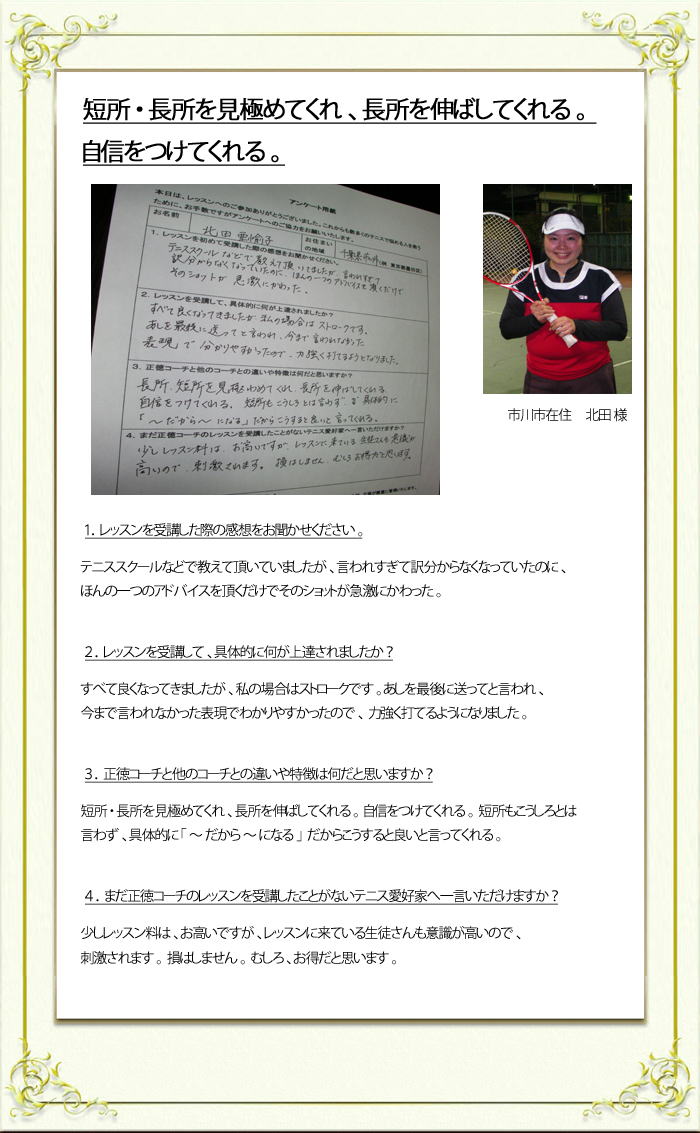 短所・長所を見極めてくれ、長所を伸ばしてくれる。
自信をつけてくれる。
アンケート用紙
本日は、レッスンへのご参加ありがとうございました。これからも数多くのテニスで悩める人を救う
ために、お手数ですがアンケートへのご協力をお願いいたします。
お名前 北田 お住まいの地域 千葉県市川市
1. レッスンを初めて受講した際の感想をお聞かせください。
テニススクールなどで教えて頂いてましたが、言われすぎて
訳分からなくなっていたのに、ほんの一つのアドバイスを頂くだけで
そのショットが急激にかわった。
2. レッスンを受講して、具体的に何が上達されましたか?
すべて良くなってきましたが私の場合はストロークです。
あしを最後に送ってと言われ、今まで言われなかった
表現で分かりやすかったので、力強く打てるようとなりました。
3. 正徳コーチと他のコーチとの違いや特徴は何だと思いますか?
長所、短所を見極めてくれ、長所を伸ばしてくれる
自信をつけてくれる。短所もこうしろとは言わず、具体的に
「〜だから〜になる」だからこうすると良いと言ってくれる。
4. まだ正徳コーチのレッスンを受講したことがないテニス愛好家へ一言いただけますか?
少しレッスン料は、お高いですが、レッスンに来ている生徒さんも意識が
高いので、刺激されます。損はしません、むしろお得だと思います。
市川市在住 北田様
1. レッスンを受講した際の感想をお聞かせください。
テニススクールなどで教えて頂いていましたが、言われすぎて訳分からなくなっていたのに、
ほんの一つのアドバイスを頂くだけでそのショットが急激にかわった。
2. レッスンを受講して、具体的に何が上達されましたか?
すべて良くなってきましたが、私の場合はストロークです。あしを最後に送ってと言われ、
今まで言われなかった表現でわかりやすかったので、力強く打てるようになりました。
3. 正徳コーチと他のコーチとの違いや特徴は何だと思いますか?
短所・長所を見極めてくれ、長所を伸ばしてくれる。自信をつけてくれる。短所もこうしろとは
言わず、具体的に「〜だから〜になる」だからこうすると良いと言ってくれる。
4. まだ正徳コーチのレッスンを受講したことがないテニス愛好家へ一言いただけますか?
少しレッスン料は、お高いですが、レッスンに来ている生徒さんも意識が高いので、
刺激されます。損はしません。むしろ、お得だと思います。